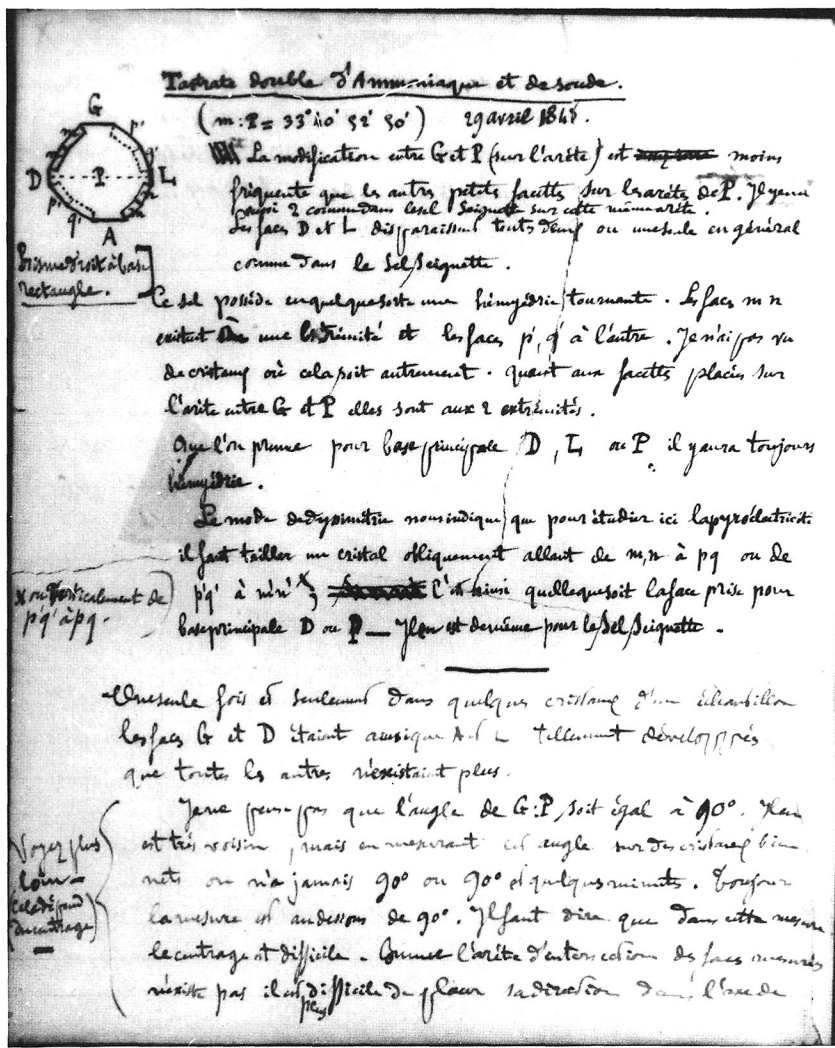 Tartrate double d'Ammoniaque et de soude.
(m:P = 33° 40' 52' 50') 29 avril 1848.
G
n m p' q'
D P L
p q n m
A
La modification entre G et P (sur l'arête) est moins
fréquente que les autres petites facettes sur les arêtes de P. Il y en a
aussi 2 comme dans le sel Seignette sur cette même arête.
Les faces D et L disparaissent toutes deux ou une seule en général
comme dans le Sel Seignette.
Prisme droit à base
rectangle.
Ce sel possède en quelque sorte une hémyédrie tournante. Les faces m n
existent à une extrémité et les faces p', q' à l'autre. Je n'ai pas vu
de cristaux où cela soit autrement. Quant aux facettes placées sur
l'arête entre G et P elles sont aux 2 extrémités.
Que l'on prenne pour base principale D, L ou P il y aura toujours
hémyédrie.
Le mode de dyssimétrie nous indique que pour étudier ici la pyroélectricité
il faut tailler un cristal obliquement allant de m,n à pq ou de
p'q' à m'n' x; C'est ainsi quelle que soit la face prise pour
base principale D ou P — Il en est de même pour le Sel Seignette.
x ou verticalement de
p'q' à pq.
Une seule fois et seulement dans quelques cristaux d'un échantillon
les faces G et D étaient ainsi que A et L tellement développées
que toutes les autres n'existaient plus.
Je ne pense pas que l'angle de G:P soit égal à 90°. Il en
est très voisin, mais en mesurant cet angle sur des cristaux bien
nets on n'a jamais 90° ou 90° et quelques minutes. Toujours
la mesure est au dessous de 90°. Il faut dire que dans cette mesure
le centrage est difficile. Comme l'arête d'intersection des faces mesurées
n'existe pas il est plus difficile de placer sa direction dans l'axe de
Voyez plus
loin —
Cela dépend
du centrage